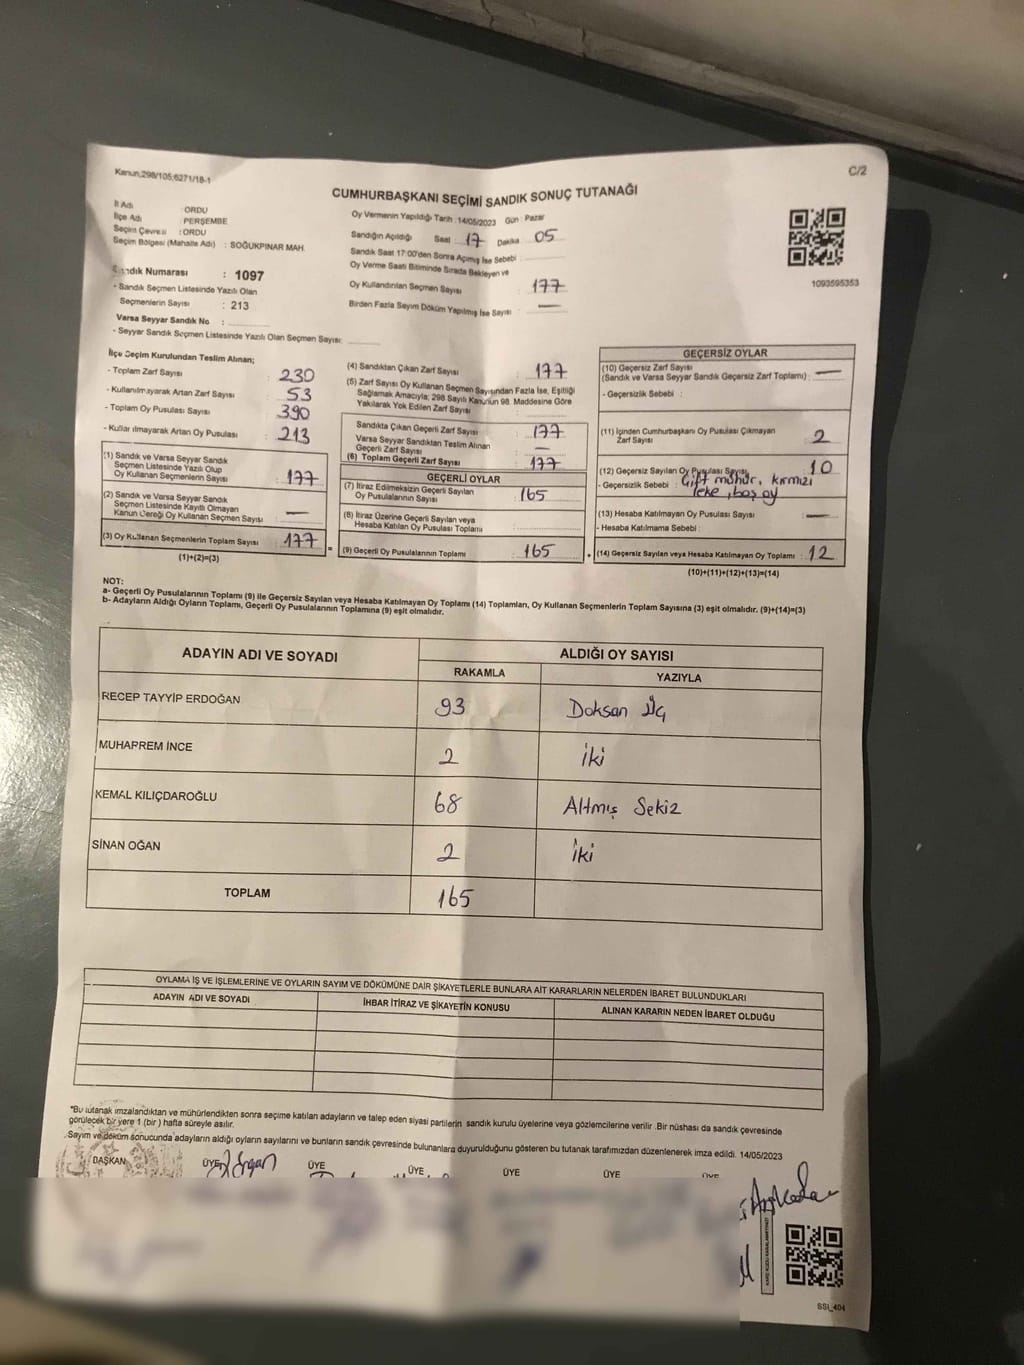 Kanun;298/105;6271/18-1
C/2
CUMHURBAŞKANI SEÇİMİ SANDIK SONUÇ TUTANAĞI
İl Adı : ORDU
İlçe Adı : PERŞEMBE
Seçim Çevresi : ORDU
Seçim Bölgesi (Mahalle Adı) : SOĞUKPINAR MAH.
Sandık Numarası : 1097
- Sandık Seçmen Listesinde Yazılı Olan
Seçmenlerin Sayısı : 213
Varsa Seyyar Sandık No :
- Seyyar Sandık Seçmen Listesinde Yazılı Olan Seçmen Sayısı:
Oy Vermenin Yapıldığı Tarih :14/05/2023 Gün : Pazar
Sandığın Açıldığı Saat 17 Dakika 05
Sandık Saat 17:00'den Sonra Açımış İse Sebebi :
Oy Verme Saati Bitiminde Sırada Bekleyen ve
Oy Kullandırılan Seçmen Sayısı : 177
Birden Fazla Sayım Döküm Yapılmış İse Sayısı : —
1093595353
İlçe Seçim Kurulundan Teslim Alınan;
- Toplam Zarf Sayısı : 230
- Kullanılmayarak Artan Zarf Sayısı : 53
- Toplam Oy Pusulası Sayısı : 390
- Kullanılmayarak Artan Oy Pusulası : 213
(1) Sandık ve Varsa Seyyar Sandık
Seçmen Listesinde Yazılı Olup
Oy Kullanan Seçmenlerin Sayısı : 177
(2) Sandık ve Varsa Seyyar Sandık
Seçmen Listesinde Kayıtlı Olmayan
Kanun Gereği Oy Kullanan Seçmen Sayısı : —
(3) Oy Kullanan Seçmenlerin Toplam Sayısı : 177
(1)+(2)=(3)
(4) Sandıktan Çıkan Zarf Sayısı : 177
(5) Zarf Sayısı Oy Kullanan Seçmen Sayısından Fazla İse, Eşitliği
Sağlamak Amacıyla; 298 Sayılı Kanunun 98. Maddesine Göre
Yakılarak Yok Edilen Zarf Sayısı :
Sandıkta Çıkan Geçerli Zarf Sayısı : 177
Varsa Seyyar Sandıktan Teslim Alınan
Geçerli Zarf Sayısı : —
(6) Toplam Geçerli Zarf Sayısı : 177
GEÇERLİ OYLAR
(7) İtiraz Edilmeksizin Geçerli Sayılan
Oy Pusulalarının Sayısı : 165
(8) İtiraz Üzerine Geçerli Sayılan veya
Hesaba Katılan Oy Pusulası Toplamı :
= (9) Geçerli Oy Pusulalarının Toplamı : 165
GEÇERSİZ OYLAR
(10) Geçersiz Zarf Sayısı
(Sandık ve Varsa Seyyar Sandık Geçersiz Zarf Toplamı) : —
- Geçersizlik Sebebi :
(11) İçinden Cumhurbaşkanı Oy Pusulası Çıkmayan
Zarf Sayısı : 2
(12) Geçersiz Sayılan Oy Pusulası Sayısı : 10
- Geçersizlik Sebebi : Çift mühür, kırmızı
leke, boş oy
(13) Hesaba Katılmayan Oy Pusulası Sayısı : —
- Hesaba Katılmama Sebebi :
+ (14) Geçersiz Sayılan veya Hesaba Katılmayan Oy Toplamı : 12
(10)+(11)+(12)+(13)=(14)
NOT:
a- Geçerli Oy Pusulalarının Toplamı (9) ile Geçersiz Sayılan veya Hesaba Katılmayan Oy Toplamı (14) Toplamları, Oy Kullanan Seçmenlerin Toplam Sayısına (3) eşit olmalıdır. (9)+(14)=(3)
b- Adayların Aldığı Oyların Toplamı, Geçerli Oy Pusulalarının Toplamına (9) eşit olmalıdır.
ADAYIN ADI VE SOYADI ALDIĞI OY SAYISI
RAKAMLA YAZIYLA
RECEP TAYYİP ERDOĞAN 93 Doksan Üç
MUHARREM İNCE 2 İki
KEMAL KILIÇDAROĞLU 68 Altmış Sekiz
SİNAN OĞAN 2 İki
TOPLAM 165
OYLAMA İŞ VE İŞLEMLERİNE VE OYLARIN SAYIM VE DÖKÜMÜNE DAİR ŞİKAYETLERLE BUNLARA AİT KARARLARIN NELERDEN İBARET BULUNDUKLARI
ADAYIN ADI VE SOYADI İHBAR İTİRAZ VE ŞİKAYETİN KONUSU ALINAN KARARIN NEDEN İBARET OLDUĞU
*Bu tutanak imzalandıktan ve mühürlendikten sonra seçime katılan adayların ve talep eden siyasi partilerin sandık kurulu üyelerine veya gözlemcilerine verilir .Bir nüshası da sandık çevresinde
görülecek bir yere 1 (bir ) hafta süreyle asılır.
Sayım ve döküm sonucunda adayların aldığı oyların sayılarını ve bunların sandık çevresinde bulunanlara duyurulduğunu gösteren bu tutanak tarafımızdan düzenlenerek imza edildi. 14/05/2023
BAŞKAN ÜYE ÜYE ÜYE ÜYE ÜYE ÜYE
SSI_404